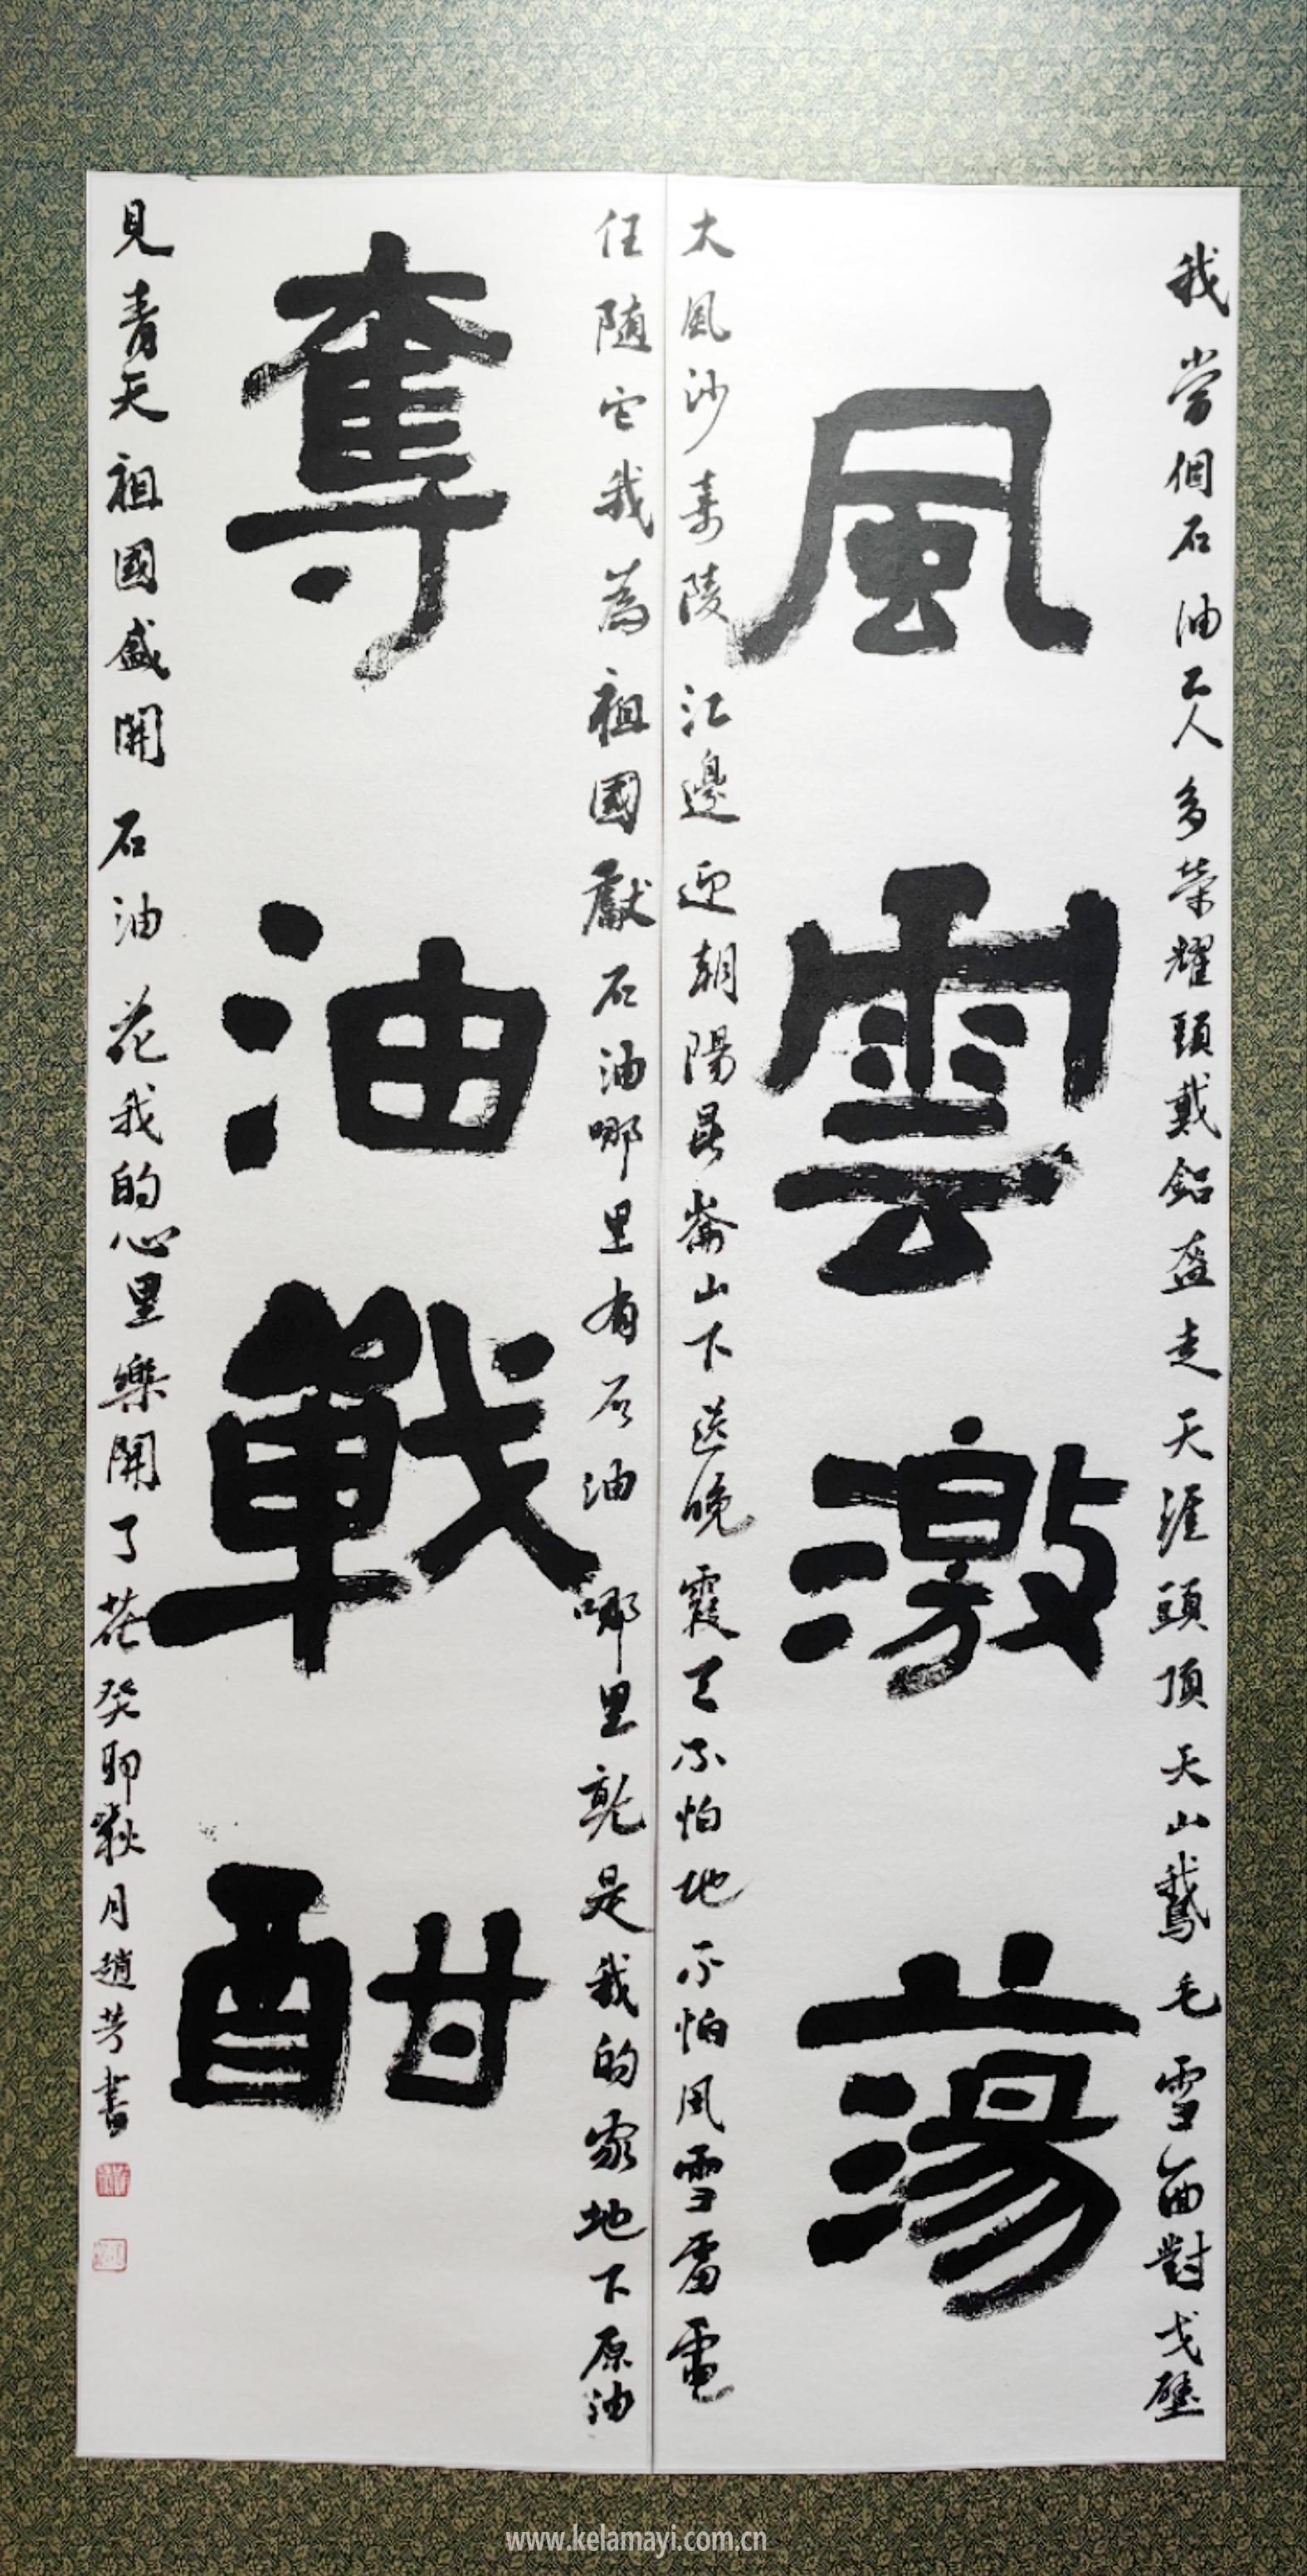 我當個石油工人多榮耀頭戴鋁盔走天涯頭頂天山鵝毛雪面對戈壁
風雲激蕩
大風沙嘉陵江邊迎朝陽昆崙山下送晚霞天不怕地不怕風雪雷電
任隨它我為祖國獻石油哪里有石油哪里就是我的家地下原油
奪油戰酣
見青天祖國盛開石油花我的心里樂開了花癸卯秋月趙芳書
www.kelamayi.com.cn